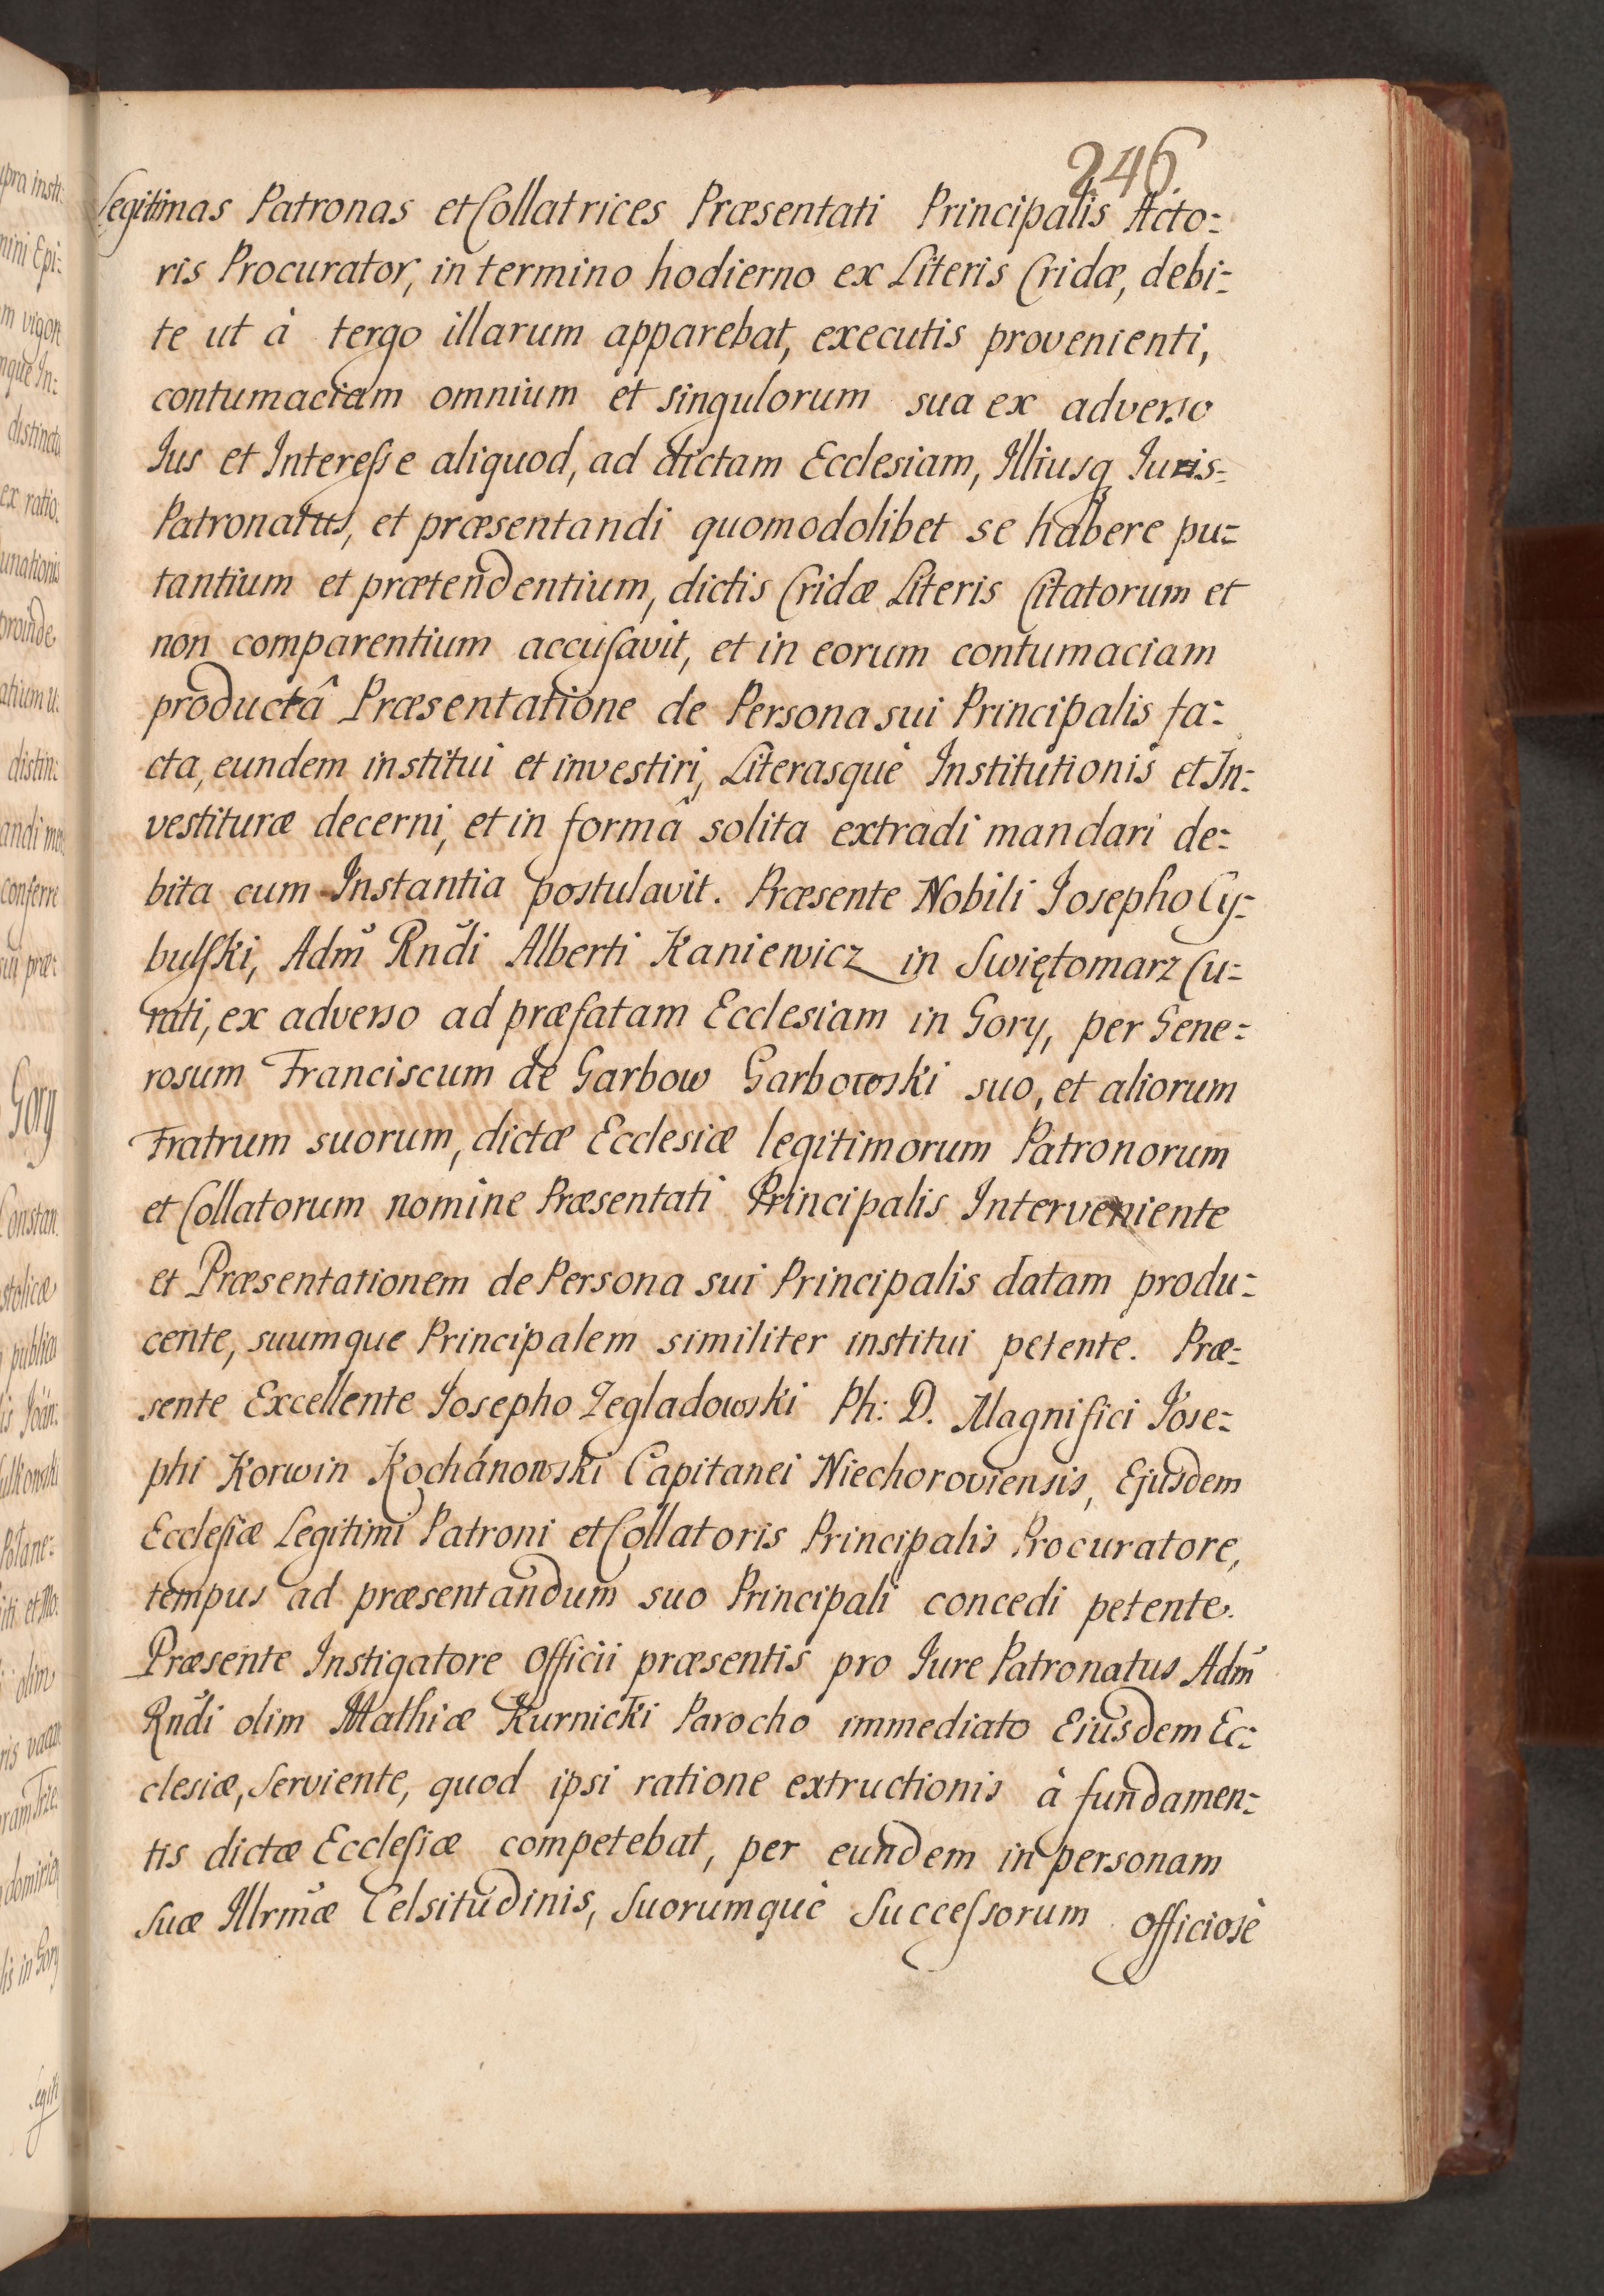 246.
legitimas Patronas et Collatrices Præsentati Principalis Acto=
ris Procurator, in termino hodierno ex Literis Cridæ, debi=
te ut à tergo illarum apparebat, executis provenienti,
contumaciam omnium et singulorum sua ex adverso
Ius et Interesse aliquod, ad dictam Ecclesiam, Illiusq Iuris=
Patronatus, et præsentandi quomodolibet se habere pu=
tantium et prætendentium, dictis Cridæ Literis Citatorum et
non comparentium accusavit, et in eorum contumaciam
productâ Præsentatione de Persona sui Principalis fa=
cta, eundem institui et investiri, Literasquè Institutionis et In=
vestituræ decerni, et in formâ solita extradi mandari de=
bita cum Instantia postulavit. Præsente Nobili Iosepho Cy=
bulski, Adm̃ Rndi Alberti Kaniewicz in Swiętomarz Cu=
rati, ex adverso ad præfatam Ecclesiam in Gory, per Gene=
rosum Franciscum de Garbow Garbowski suo, et aliorum
Fratrum suorum, dictæ Ecclesiæ legitimorum Patronorum
et Collatorum nomine Præsentati Principalis Interveniente
et Præsentationem de Persona sui Principalis datam produ=
cente, suumque Principalem similiter institui petente. Præ=
sente Excellente Iosepho Zegladowski Ph: D. Magnifici Iose=
phi Korwin Kochánowski Capitanei Niechoroviensis, Ejusdem
Ecclesiæ Legitimi Patroni et Collatoris Principalis Procuratore,
tempus ad præsentandum suo Principali concedi petente.
Præsente Instigatore Officii præsentis pro Iure Patronatus Adm̃
Rndi olim Mathiæ Kurnicki Parocho immediato Eiusdem Ec=
clesiæ, Serviente, quod ipsi ratione extructionis à fundamen=
tis dictæ Ecclesiæ competebat, per eundem in personam
Suæ Illrmæ Celsitudinis, Suorumquè Successorum officiosè